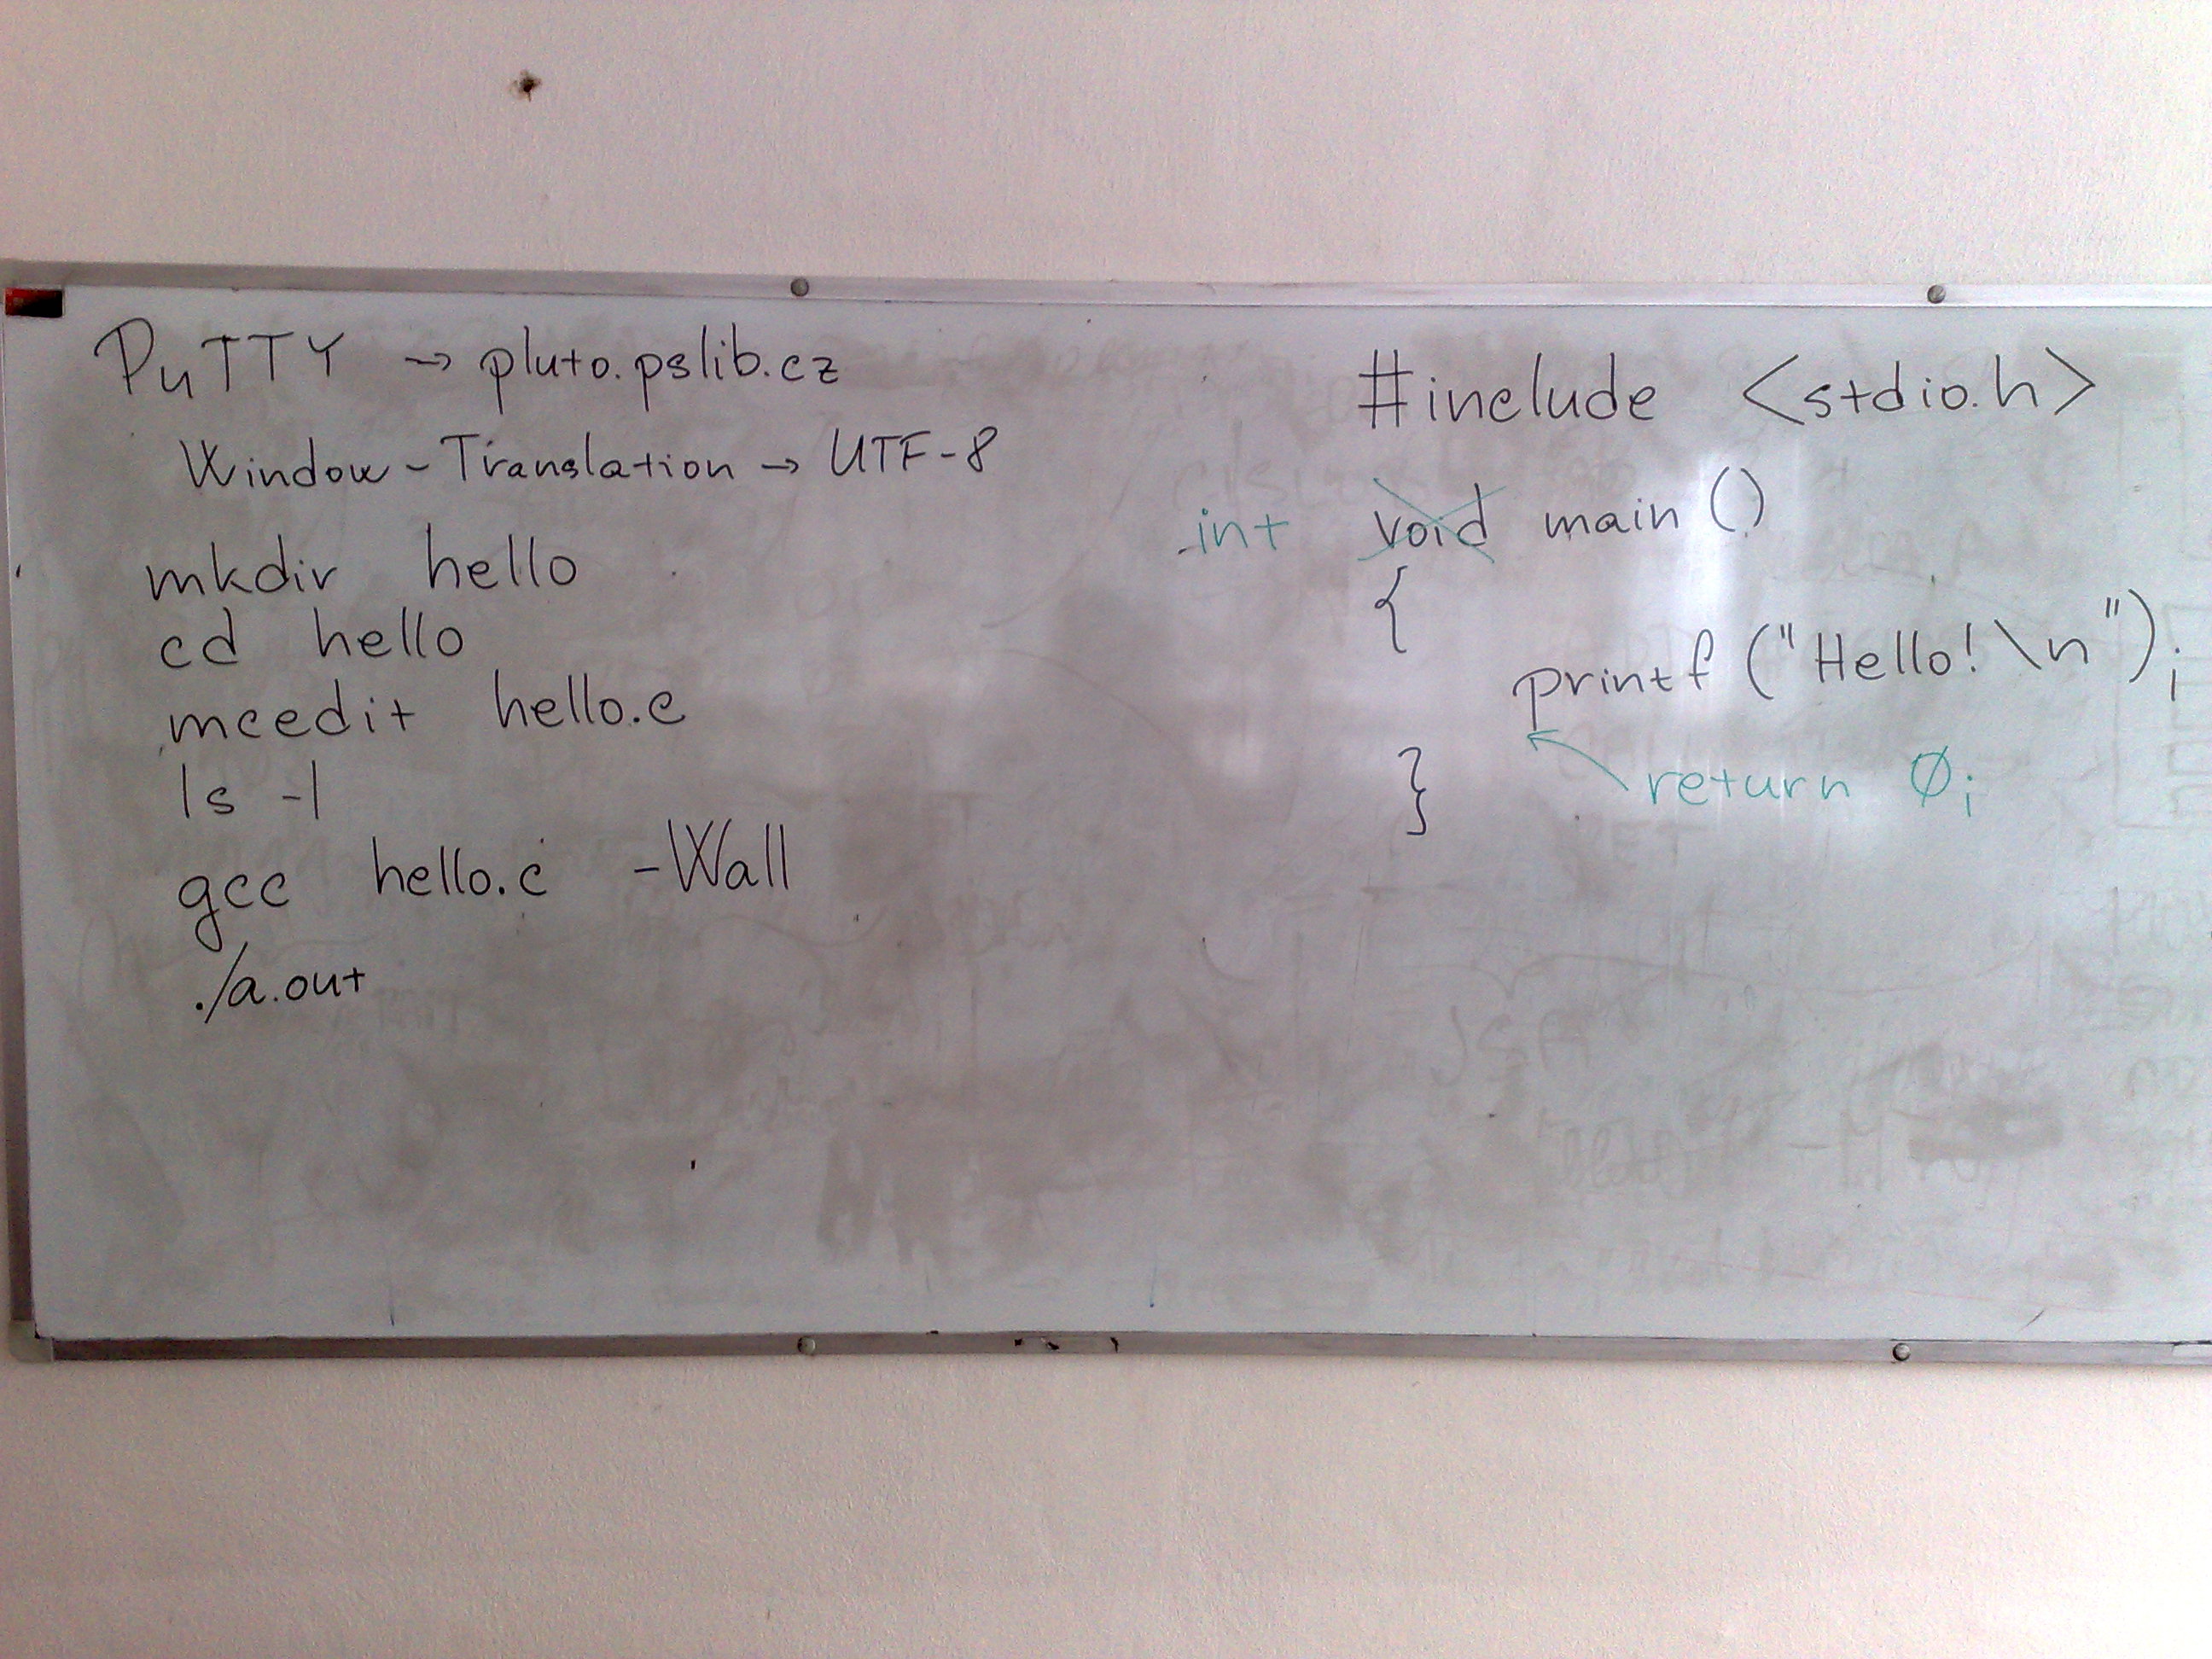 PuTTY → pluto.pslib.cz
Window - Translation → UTF-8
mkdir hello
cd hello
mcedit hello.c
ls -l
gcc hello.c -Wall
./a.out
#include <stdio.h>
int void main ()
{
printf ("Hello! \n");
return 0;
}